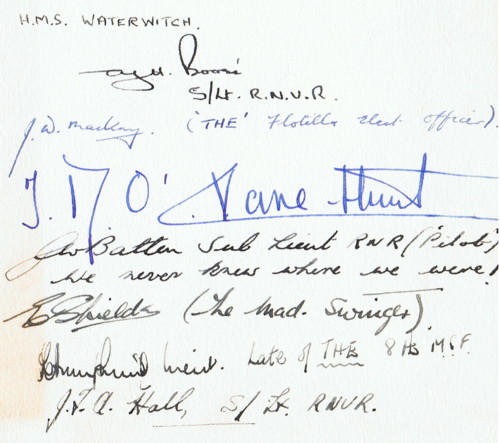 H.M.S. WATERWITCH.
S/Lt. R.N.V.R.
J. W. Mackay. ('THE' Flotilla Elect. Officer).
Vane-Hunt
J W Batten Sub Lieut RNR ('Pilot')
We never knew where we were!
E Shields (The Mad. Swinger).
Lieut. Late of THE 8th M.S.F.
J. F. A. Hall, S/Lt. RNVR.